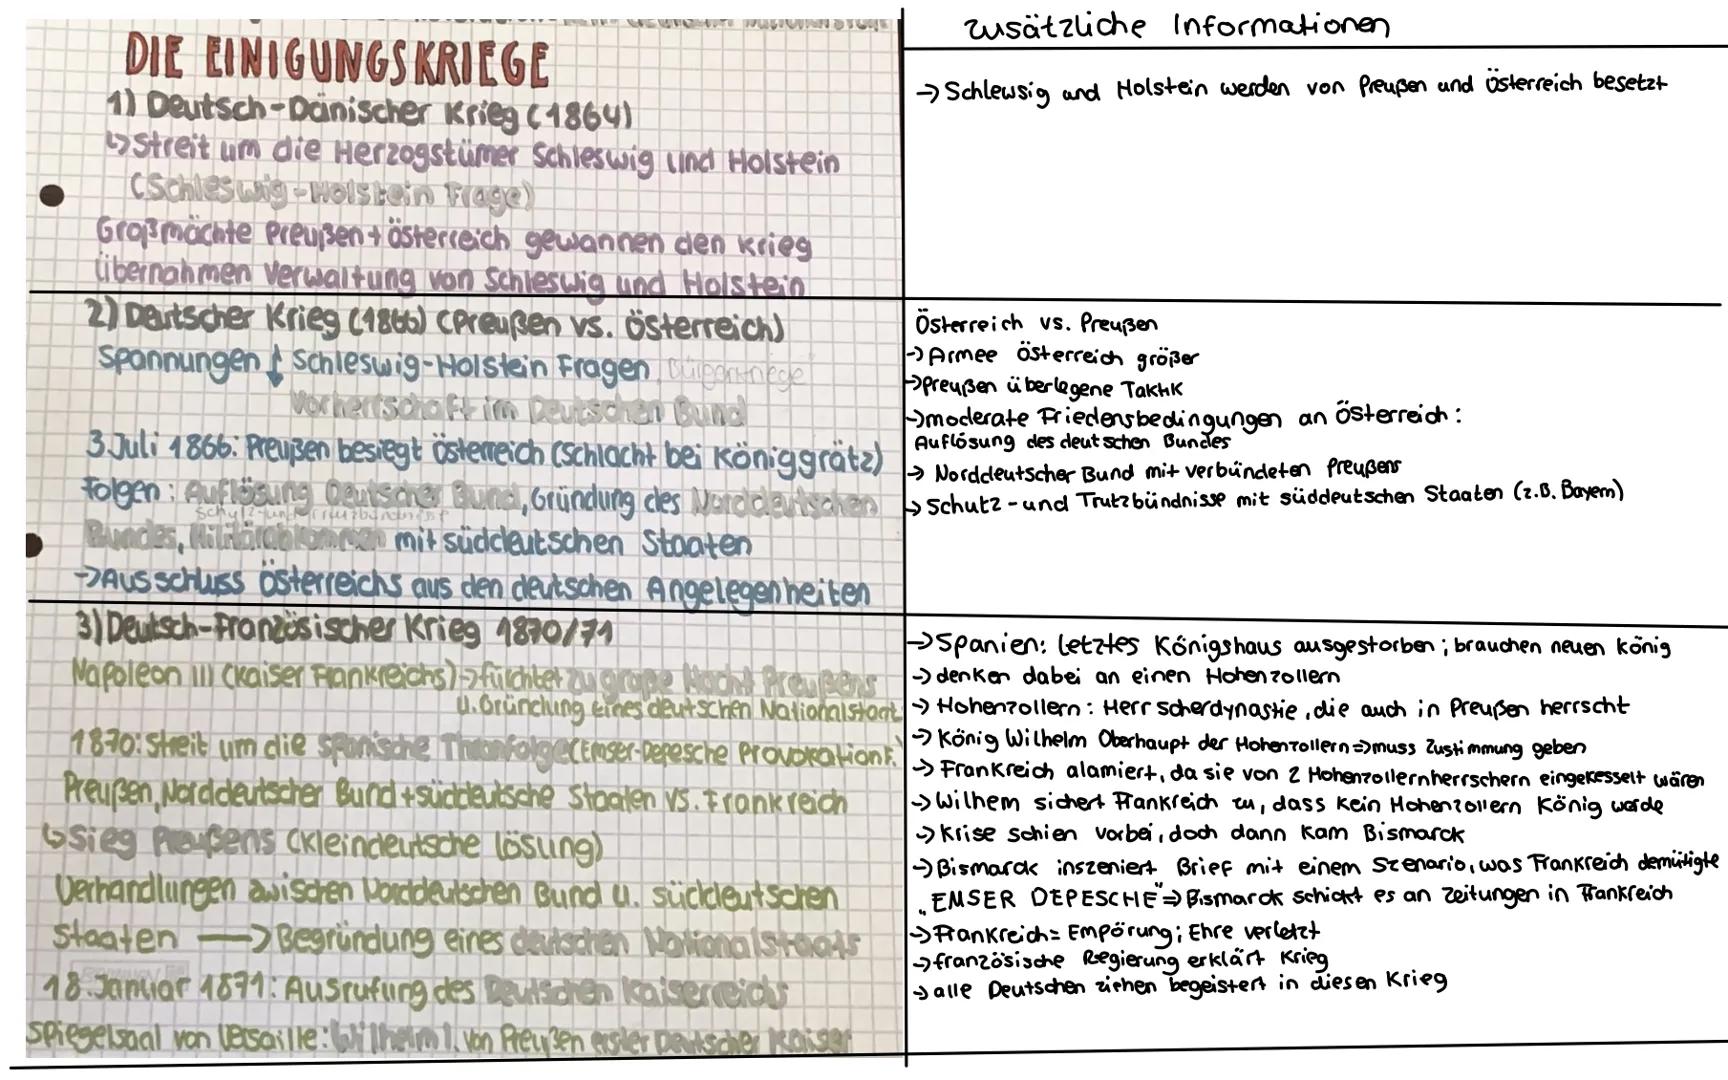 DIE EINIGUNGSKRIEGE
1) Deutsch-Dänischer Krieg (1864)
↳ Streit um die Herzogstümer Schleswig und Holstein
(Schleswig-Holstein Frage)
Großmächte Preußen + Österreich gewannen den Krieg
übernahmen Verwaltung von Schleswig und Holstein
2) Deutscher Krieg (1866) (Preußen vs. Österreich)
Spannungen ↓ Schleswig-Holstein Fragen, Bürgerkriege
Vorherrschaft im Deutschen Bund
3. Juli 1866: Preußen besiegt Österreich (Schlacht bei Königgrätz)
Folgen: Auflösung Deutscher Bund, Gründung des Norddeutschen
Schutz- und Trutzbündnisse
Bundes, Militärabkommen mit süddeutschen Staaten
→ Ausschluss Österreichs aus den deutschen Angelegenheiten
3) Deutsch-Französischer Krieg 1870/71
Napoleon III (Kaiser Frankreichs) → fürchtet zu große Macht Preußens
u. Gründung eines deutschen Nationalstaat
1870: Streit um die spanische Thronfolge (Emser-Depesche Provokation F.)
Preußen, Norddeutscher Bund + süddeutsche Staaten vs. Frankreich
↳ Sieg Preußens (Kleindeutsche lösung)
Verhandlungen zwischen Norddeutschen Bund u. süddeutschen
Staaten → Begründung eines deutschen Nationalstaats
18. Januar 1871: Ausrufung des Deutschen Kaiserreichs
Spiegelsaal von Versaille: Wilhelm I. von Preußen erster Deutscher Kaiser
zusätzliche Informationen
→ Schlewsig und Holstein werden von Preußen und Österreich besetzt
Österreich vs. Preußen
→ Armee Österreich größer
→ Preußen überlegene Taktik
→ moderate Friedensbedingungen an Österreich:
Auflösung des deutschen Bundes
→ Norddeutscher Bund mit verbündeten Preußens
→ Schutz- und Trutzbündnisse mit süddeutschen Staaten (z.B. Bayern)
→ Spanien: letztes Königshaus ausgestorben; brauchen neuen König
→ denken dabei an einen Hohenzollern
→ Hohenzollern: Herrscherdynastie, die auch in Preußen herrscht
→ König Wilhelm Oberhaupt der Hohenzollern ⇒ muss Zustimmung geben
→ Frankreich alamiert, da sie von 2 Hohenzollernherrschern eingekesselt wären
→ Wilhem sichert Frankreich zu, dass kein Hohenzollern König werde
→ Krise schien vorbei, doch dann kam Bismarck
→ Bismarck inszeniert Brief mit einem Szenario, was Frankreich demütigte
„EMSER DEPESCHE" ⇒ Bismarck schickt es an Zeitungen in Frankreich
→ Frankreich = Empörung; Ehre verletzt
→ französische Regierung erklärt Krieg
→ alle Deutschen ziehen begeistert in diesen Krieg